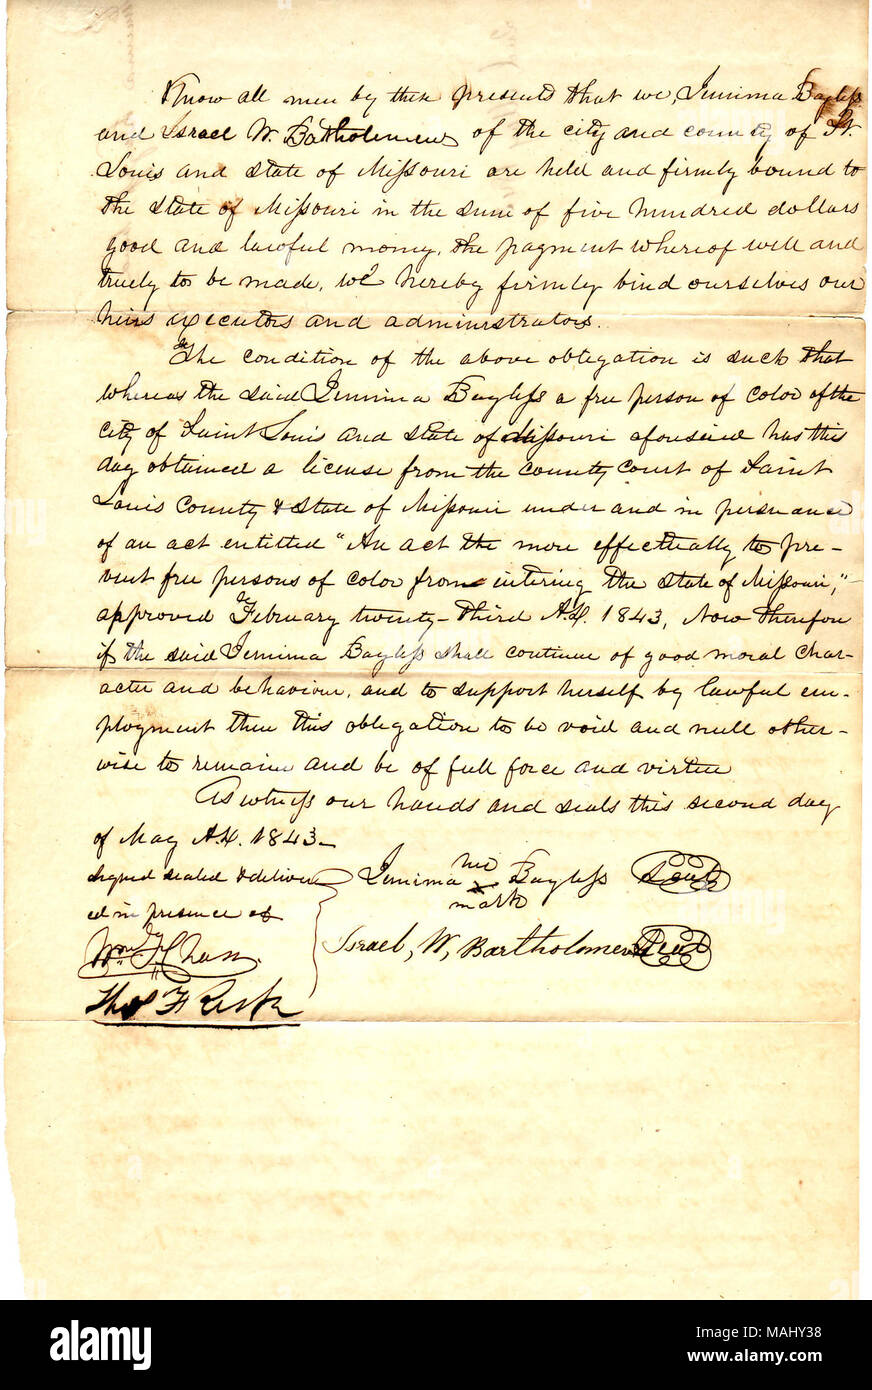 Know all men by these presents that we, Jemima Bayless
and Israel W. Bartholomew of the city and county of St.
Louis and state of Missouri are held and firmly bound to
the state of Missouri in the sum of five hundred dollars
good and lawful money, the payment whereof well and
truely to be made, we hereby firmly bind ourselves our
heirs executors and administrators.
The condition of the above obligation is such that
whereas the said Jemima Bayless a free person of color of the
city of Saint Louis and state of Missouri aforesaid has this
day obtained a license from the county court of Saint
Louis County & state of Missouri under and in persuance
of an act entitled "An act the more effectually to pre-
vent free persons of color from intering the state of Missouri,"
approved February twenty-third A.D. 1843, Now therefore
if the said Jemima Bayless shall continue of good moral char-
acter and behaviour, and to support herself by lawful em-
ployment then this obligation to be void and null other-
wise to remain and be of full force and virtue
As witness our hands and seals this second day
of May A.D. 1843-
signed sealed & deliver
ed in presence of
Jemima her x mark Bayless Seal
Israel, W, Bartholomew Seal
Wm
Thos F Risk
alamy
Image ID: MAHY38
www.alamy.com